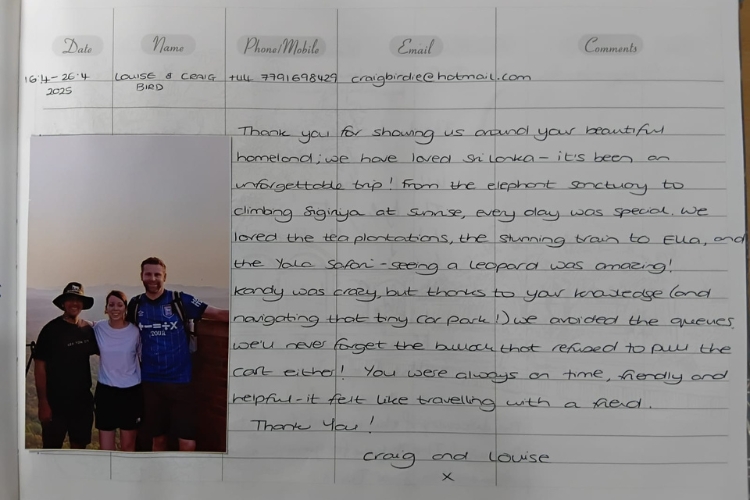 Date Name Phone/Mobile Email Comments
16.4-26.4 LOUISE & CRAIG +44 7791698429 craigbirdie@hotmail.com
2025 BIRD
Thank you for showing us around your beautiful
homeland; we have loved Sri Lanka - it's been an
unforgettable trip! From the elephant sanctuary to
climbing Sigiriya at sunrise, every day was special. We
loved the tea plantations, the stunning train to Ella, and
the Yala Safari - seeing a leopard was amazing!
Kandy was crazy, but thanks to your knowledge (and
navigating that tiny car park!) we avoided the queues.
We'll never forget the bullock that refused to pull the
cart either! You were always on time, friendly and
helpful - it felt like travelling with a friend.
Thank You!
Craig and Louise
x
÷-=÷×